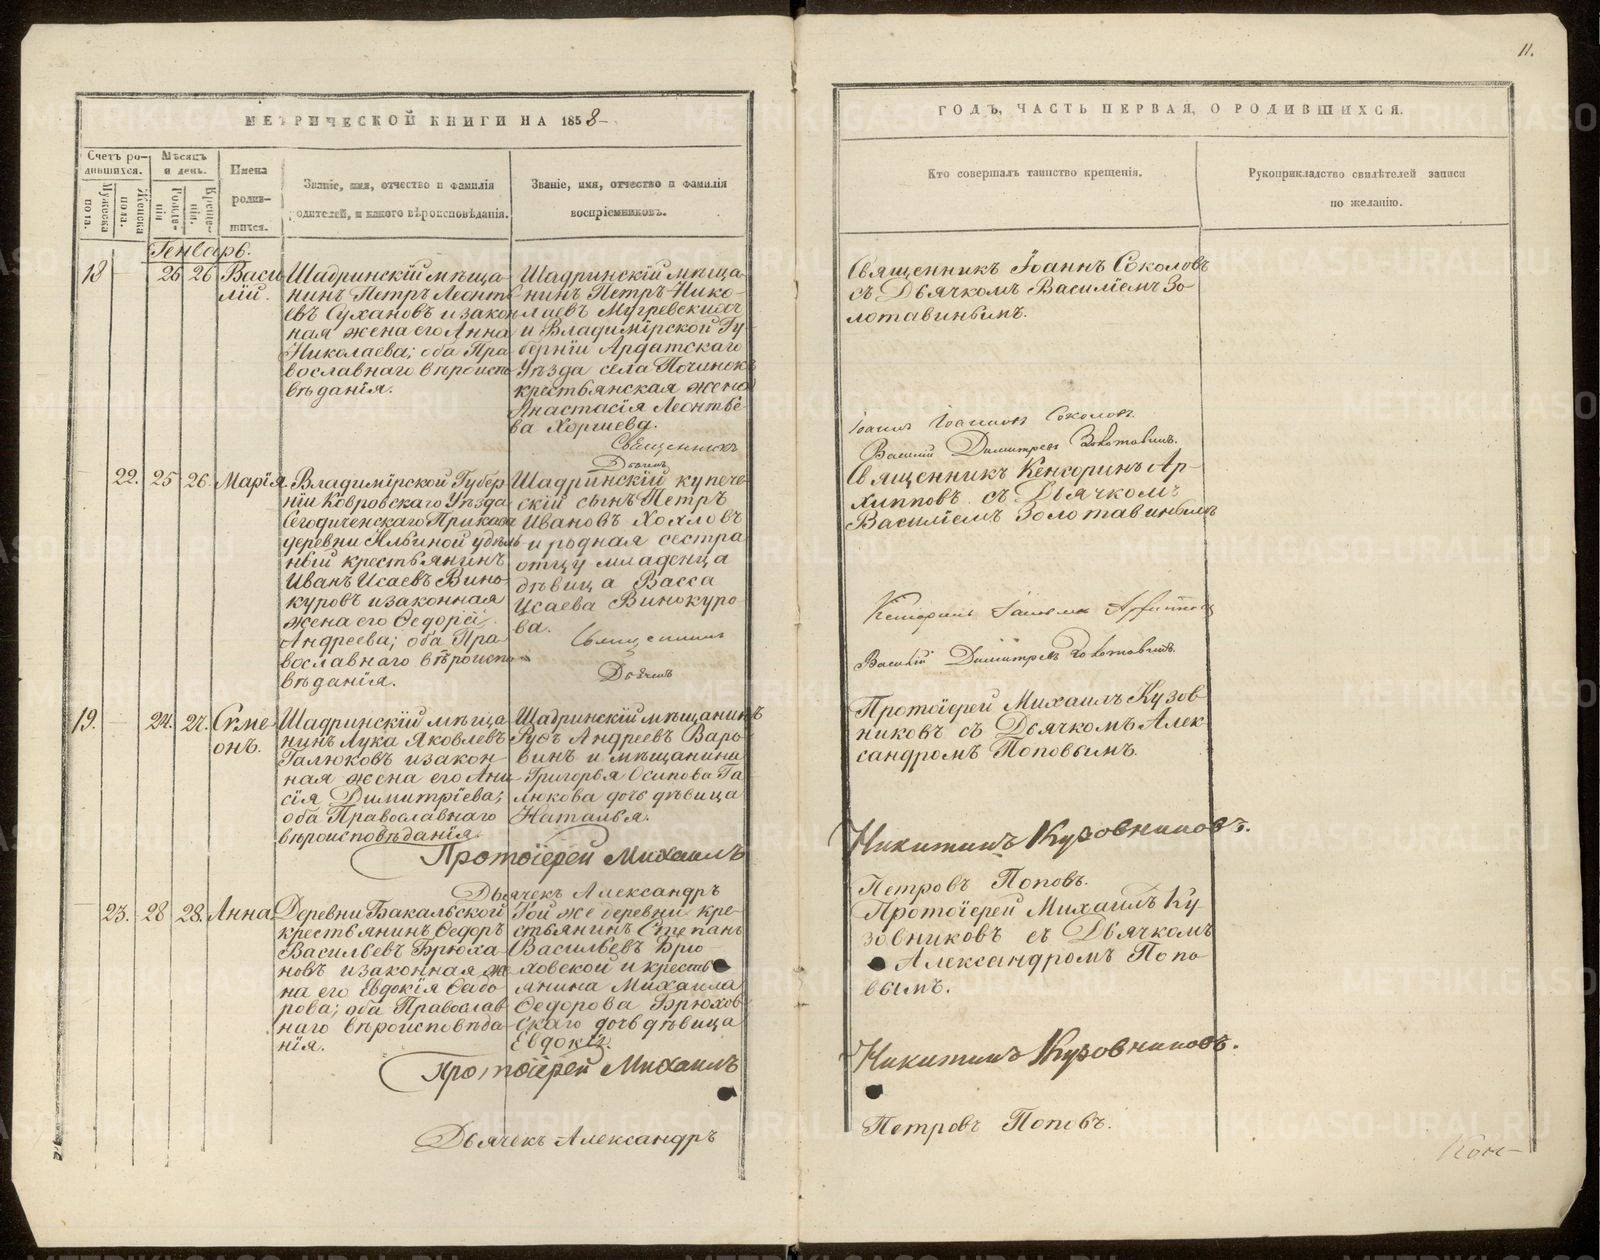 11.
МЕТРИЧЕСКОЙ КНИГИ НА 1858
ГОДЪ, ЧАСТЬ ПЕРВАЯ, О РОДИВШИХСЯ.
Счетъ ро-
дившихся.
Мужеска
пола.
Женска
пола.
Мѣсяцъ
и день.
Рожде-
нія
Креще-
нія.
Имена
родив-
шихся.
Званіе, имя, отчество и фамилія
родителей, и какого вѣроисповѣданія.
Званіе, имя, отчество и фамилія
воспріемниковъ.
Кто совершалъ таинство крещенія.
Рукоприкладство свидѣтелей записи
по желанію.
Генварь.
18 26 26 Васи
лій.
Шадринскій мѣща
нинъ Петръ Леонть
евъ Сухановъ и закон
ная жена его Анна
Николаева; оба Пра
вославнаго вѣроиспо
вѣданія.
Шадринскій мѣща
нинъ Петръ Нико-
лаевъ Мугревскихъ
и Владимірской Гу
берніи Ардатскаго
Уѣзда села Починокъ
крестьянская жена
Анастасія Леонтье
ва
Священникъ
Священникъ Іоаннъ Соколовъ
съ Дьячкомъ Василіемъ Зо-
лотавинымъ.
Іоаннъ Іоанновъ Соколовъ
Василій Димитревъ Золотавинъ.
22. 25 26 Марія
Владимірской Губер
ніи Ковровскаго Уѣзда
Сегодиченскаго Приказа
деревни Ильиной удѣль
ный крестьянинъ
Иванъ Исаевъ Вино-
куровъ и законная
жена его Ѳедорія
Андреева; оба Пра
вославнаго вѣроиспо
вѣданія.
Шадринскій купече
скій сынъ Петръ
Ивановъ Хохловъ
и родная сестра
отцу младенца
дѣвица Васса
Исаева Винокуро
ва.
Священникъ
Дьячекъ
Священникъ Кенсоринъ Ар-
хипповъ съ Дьячкомъ
Василіемъ Золотавинымъ
Василій Димитревъ Золотавинъ.
19. 24. 27. Симе-
онъ.
Шадринскій мѣща
нинъ Лука Яковлевъ
Галюковъ и закон
ная жена его Ани
сія Димитріева;
оба Православнаго
вѣроисповѣданія.
Шадринскій мѣщанинъ
Руфъ Андреевъ Варь
винъ и мѣщанина
Григорья Осипова Га
люкова дочь дѣвица
Наталья.
Протоіерей Михаилъ
Дьячекъ Александръ
Протоіерей Михаилъ Кузов
никовъ съ Дьячкомъ Алек
сандромъ Поповымъ.
Никитинъ Кузовниковъ.
Петровъ Поповъ.
23. 28 28. Анна
Деревни Бакальской
крестьянинъ Ѳедоръ
Васильевъ Брюха
новъ и законная же
на его Евдокія Ѳедо
рова; оба Православ
наго вѣроисповѣда
нія.
Той же деревни кре-
стьянинъ Степанъ
Васильевъ Брю-
ховской и кресть
янина Михаила
Ѳедорова Брюхов
скаго дочь дѣвица
Евдокія.
Протоіерей Михаилъ
Дьячекъ Александръ
Протоіерей Михаилъ Ку
зовниковъ съ Дьячкомъ
Александромъ Попо
вымъ.
Никитинъ Кузовниковъ.
Петровъ Поповъ.